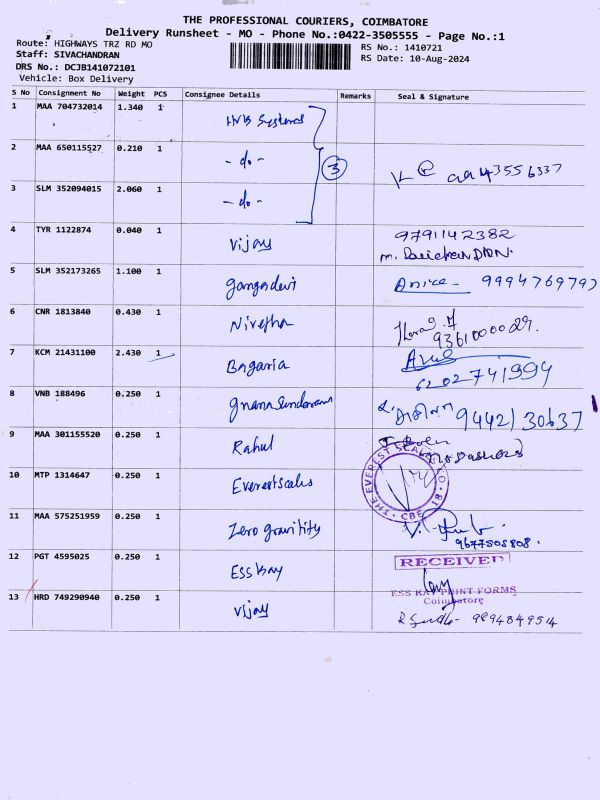 THE PROFESSIONAL COURIERS, COIMBATORE
Delivery Runsheet - MO - Phone No.:0422-3505555 - Page No.:1
Route: HIGHWAYS TRZ RD MO
RS No.: 1410721
Staff: SIVACHANDRAN
RS Date: 10-Aug-2024
DRS No.: DCJB141072101
Vehicle: Box Delivery
S No Consignment No Weight PCS Consignee Details Remarks Seal & Signature
1 MAA 704732014 1.340 1 Systems
2 MAA 650115527 0.210 1 - do - 3
3 SLM 352094015 2.060 1 - do -
4 TYR 1122874 0.040 1 Vijay 9791142382
5 SLM 352173265 1.100 1 gangadevi
6 CNR 1813840 0.430 1 Nivetha
7 KCM 21431100 2.430 1 Bagaria
6202741994
8 VNB 188496 0.250 1 gnanasundaram
9 MAA 301155520 0.250 1 Rahul
10 MTP 1314647 0.250 1 Everestscales THE EVEREST SCALE CO. CBE - 18
11 MAA 575251959 0.250 1 Zero gravitity
9677505808.
12 PGT 4595025 0.250 1 Ess Kay RECEIVED
ESS KAY PRINT FORMS
Coimbatore
13 HRD 749290940 0.250 1 Vijay 9894849514